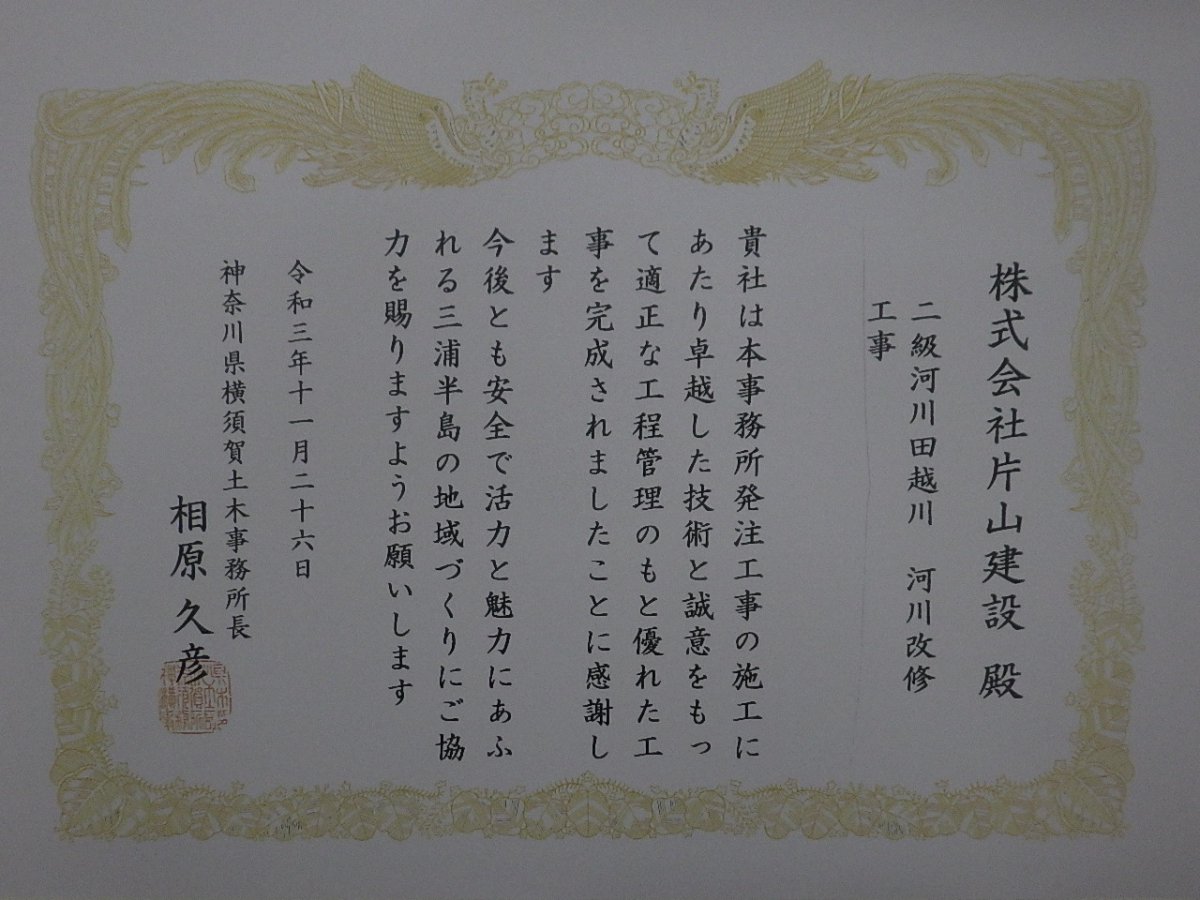 株式会社片山建設 殿
二級河川田越川 河川改修
工事
貴社は本事務所発注工事の施工に
あたり卓越した技術と誠意をもっ
て適正な工程管理のもと優れた工
事を完成されましたことに感謝し
ます
今後とも安全で活力と魅力にあふ
れる三浦半島の地域づくりにご協
力を賜りますようお願いします
令和三年十一月二十六日
神奈川県横須賀土木事務所長
相原久彦